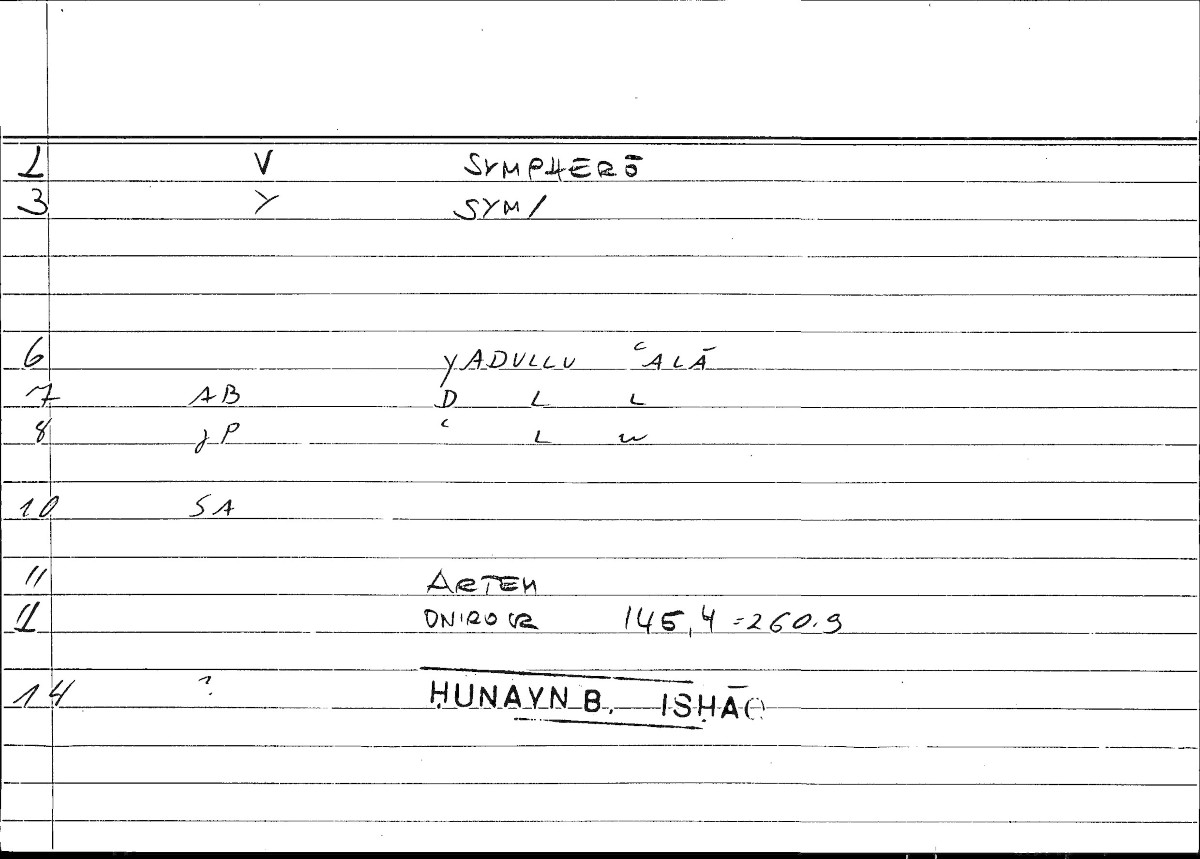 1 V SYMPHERŌ
3 Y SYM/
6 yADULLU ʿALĀ
7 AB D L L
8 JP ʿ L w
10 SA
11 ARTEM
1 ONIROCR 145,4 = 260.9
14 ? ḤUNAYN B. ISḤĀQ